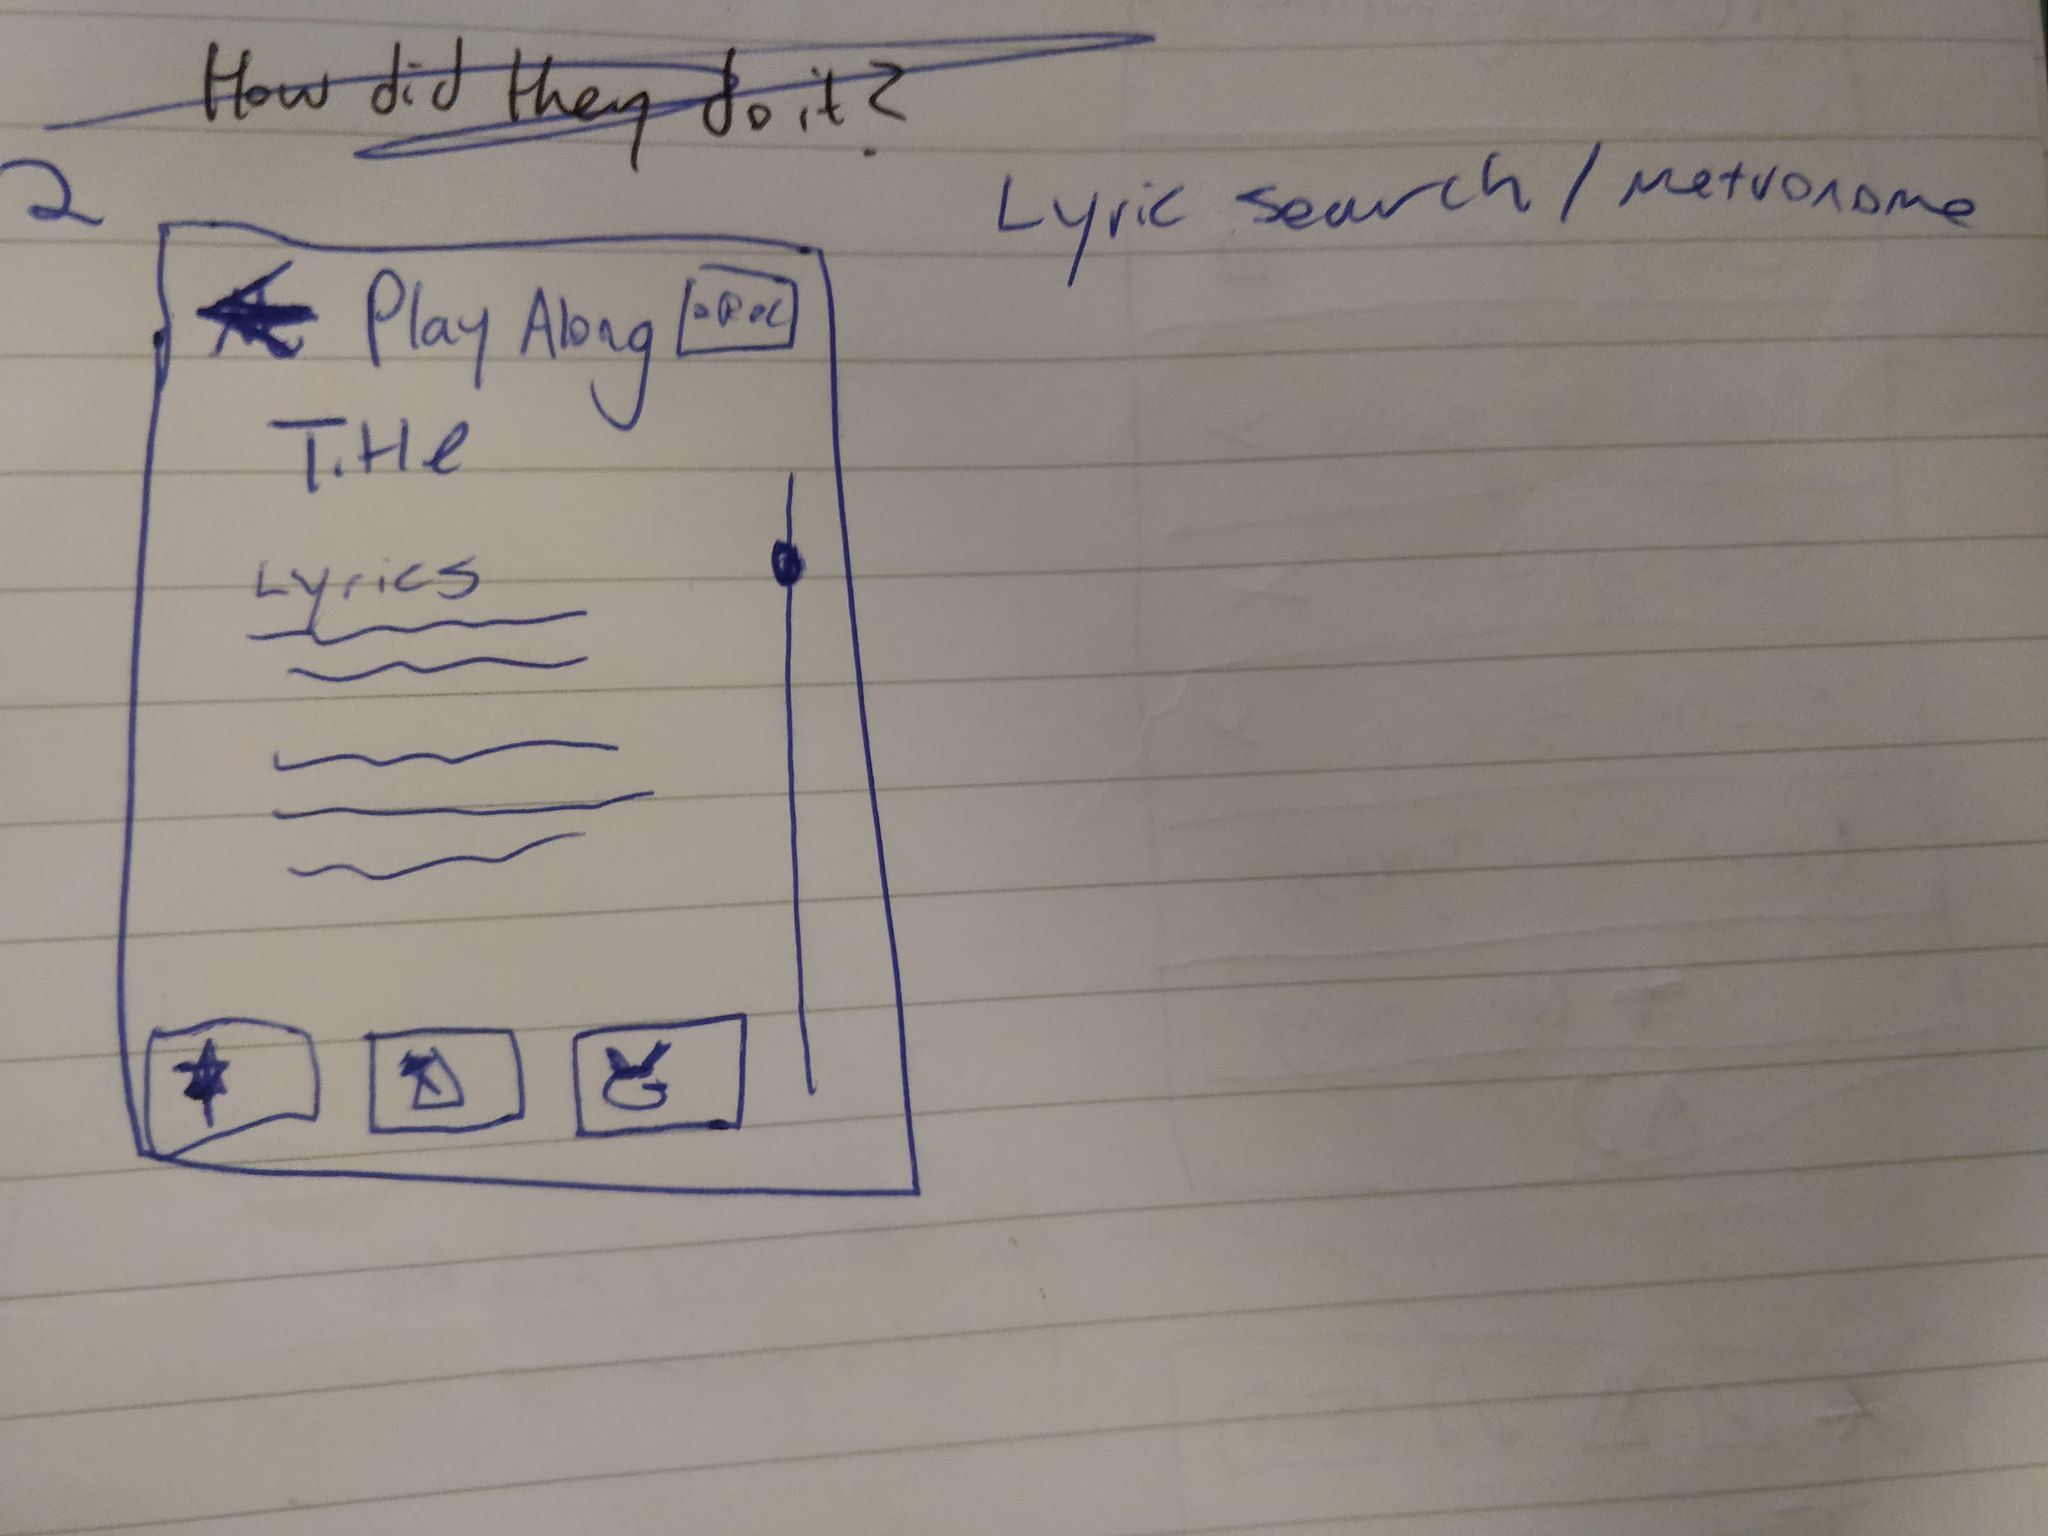 How did they do it?
2
Lyric search / Metronome
Play Along
REC
Title
Lyrics